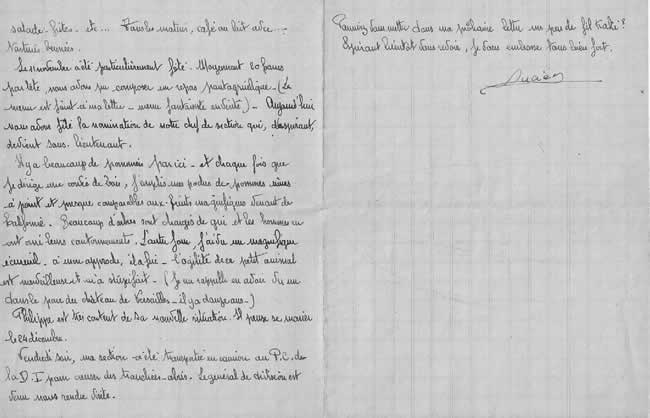 salade - frites - etc... Tous les matins, café au lait avec...
tartines beurrées.
Le 11 novembre a été particulièrement fêté. Moyennant 20 francs
par tête nous avons pu composer un repas pantagruélique - (Le
menu est joint à ma lettre - menu fantaisiste en vérité) - Aujourd'hui
nous avons fêté la nomination de notre chef de section qui, d'aspirant,
devient sous-lieutenant.
Il y a beaucoup de pommiers par ici - et chaque fois que
je dirige une corvée de bois, j'emplis mes poches de pommes mûres
à point et presque comparables aux fruits magnifiques venant de
Californie. Beaucoup d'arbres sont chargés de gui et les hommes en
ont orné leurs cantonnements. L'autre jour, j'ai vu un magnifique
écureuil - à mon approche, il a fui - l'agilité de ce petit animal
est merveilleuse et m'a stupéfait - (Je me rappelle en avoir vu un
dans le parc du château de Versailles - il y a douze ans -)
Philippe est très content de sa nouvelle situation. Il pense se marier
le 24 décembre.
Vendredi soir, ma section a été transportée en camion au P.C. de
la D.I pour creuser des tranchées-abris. Le général de division est
venu nous rendre visite.
Pourriez-vous mettre dans ma prochaine lettre un peu de fil kaki?
Espérant bientôt vous revoir, je vous embrasse tous bien fort.